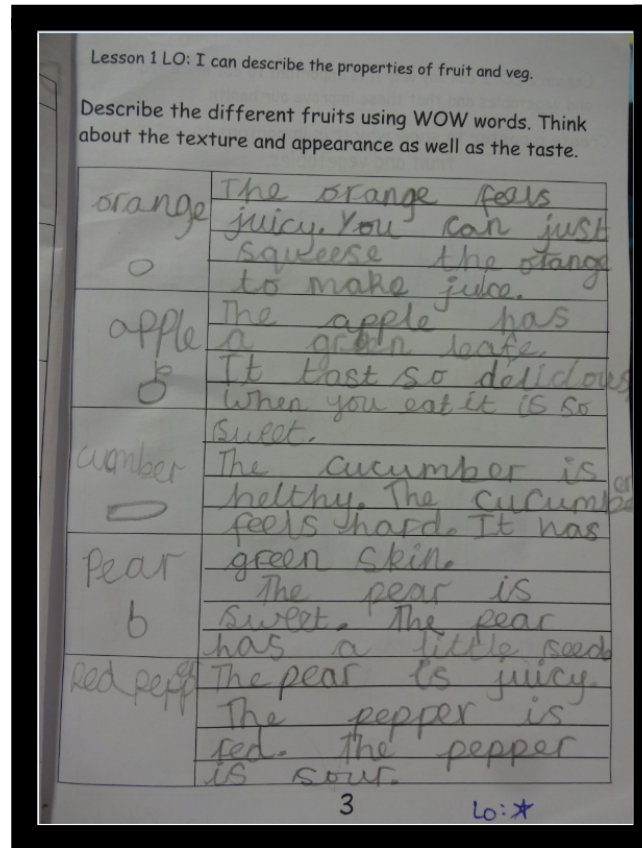 Lesson 1 LO: I can describe the properties of fruit and veg.
Describe the different fruits using WOW words. Think
about the texture and appearance as well as the taste.
orange
The orange feels
juicy. You can just
squeese the orange
to make juice.
apple
The apple has
a green leafe.
It tast so delicious
when you eat it is so
sweet.
cucmber
The cucumber is
helthy. The cucumber
feels hard. It has
green skin.
Pear
The pear is
sweet. The pear
has a little seed
The pear is juicy.
Red pepper
The pepper is
red. The pepper
is sour.
3
LO: